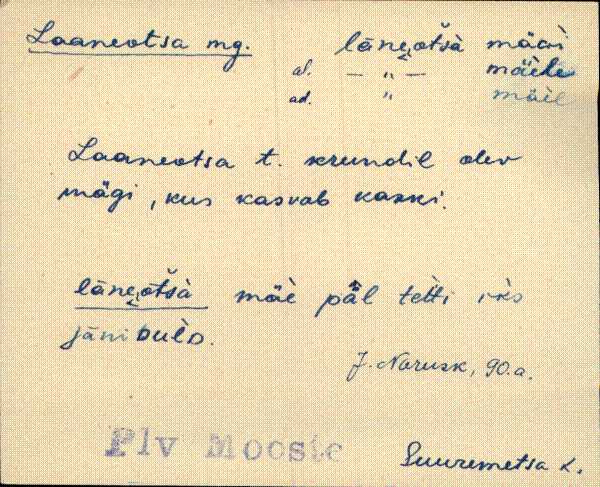 Laaneotsa mg. läne̬òtšà mäǵi
al. — „ — mäèle
ad. „ mäèl
Laaneotsa t. krundil olev
mägi, kus kasvab kaski.
läne̬òtšà mäè päl tetti
jäni
J. Narusk, 90.a.
Plv Mooste
Suuremetsa K.